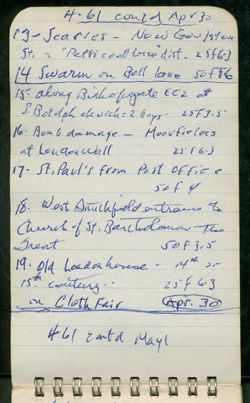 4-61 cont'd Apr 30
13- Scarves - New Goulston
St. - "Petticoat Lane" dist. - 25 f 6.3
14 Swarm on Bell Lane 50 f 5.6
15. along Bishopsgate EC2 at
S. Botolph church - 2 boys - 25 f 3.5
16. Bomb damage - Moorfields
at London Wall 25 f 6.3
17. St. Paul's from Post Office
50 f 4
18. West Smithfield entrance to
Church of St. Bartholomew The
Great 50 f 3.5
19. Old London house - 14th or
15th century - 25 f 6.3
on Cloth Fair Apr. 30
4-61 cont'd May 1